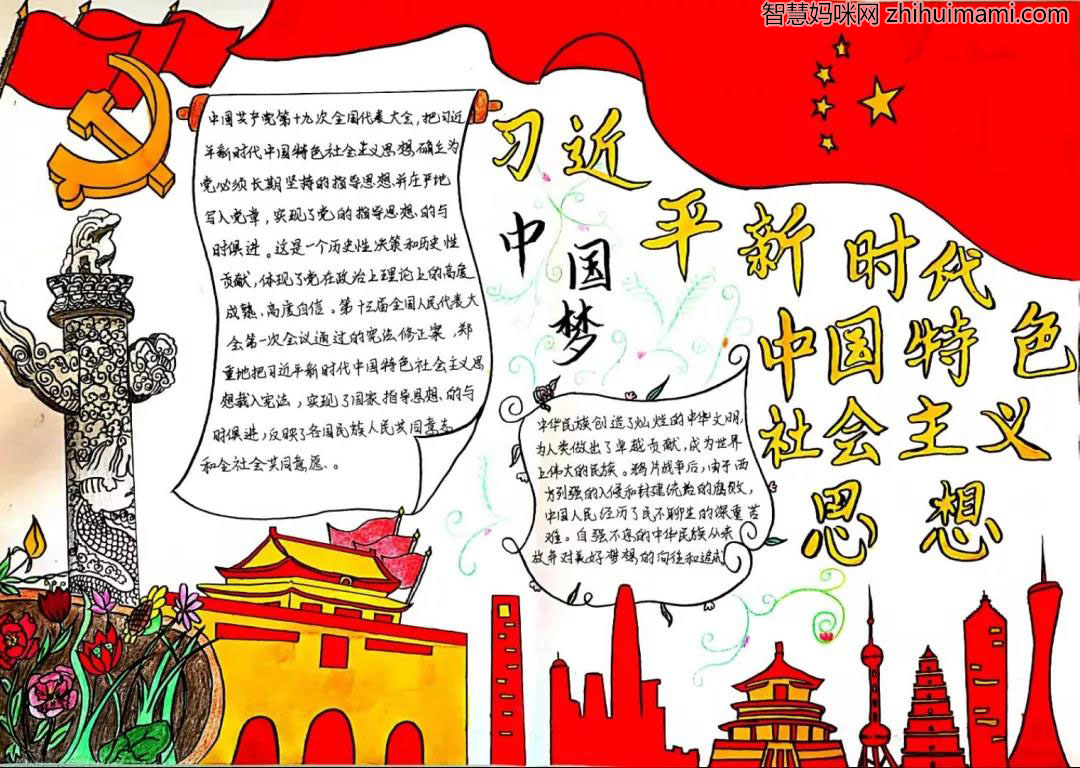 智慧妈咪网 zhihuimami.com
习近平新时代
中国特色
社会主义
思想
中国梦
中国共产党第十九次全国代表大会，把习近
平新时代中国特色社会主义思想，确立为
党必须长期坚持的指导思想并庄严地
写入党章，实现了党的指导思想、的与
时俱进。这是一个历史性决策和历史性
贡献，体现了党在政治上理论上的高度
成熟、高度自信。第十三届全国人民代表大
会第一次会议通过的宪法修正案，郑
重地把习近平新时代中国特色社会主义思
想载入宪法，实现了国家指导思想、的与
时俱进，反映了各国民族人民共同意志
和全社会共同意愿、。
中华民族创造了灿烂的中华文明，
为人类做出了卓越贡献，成为世界
上伟大的民族。鸦片战争后，由于西
方列强的入侵和封建统治的腐败，
中国人民经历了民不聊生的深重苦
难。自强不息的中华民族从未
放弃对美好梦想的向往和追求